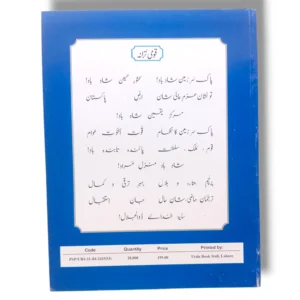 قومی ترانہ
پاک سر زمین شاد باد! کشور حسین شاد باد!
تو نشان عزم عالی شان ارض پاکستان
مرکز یقین شاد باد!
پاک سر زمین کا نظام قوت اخوت عوام
قوم، ملک، سلطنت پائندہ تابندہ باد!
شاد باد منزل مراد!
پرچم ستارہ و ہلال رہبر ترقی و کمال
ترجمان ماضی شان حال جان استقبال
سایۂ خدائے ذوالجلال!
Code Quantity Price Printed by:
20,000 159.00 Urdu Book Stall, Lahore